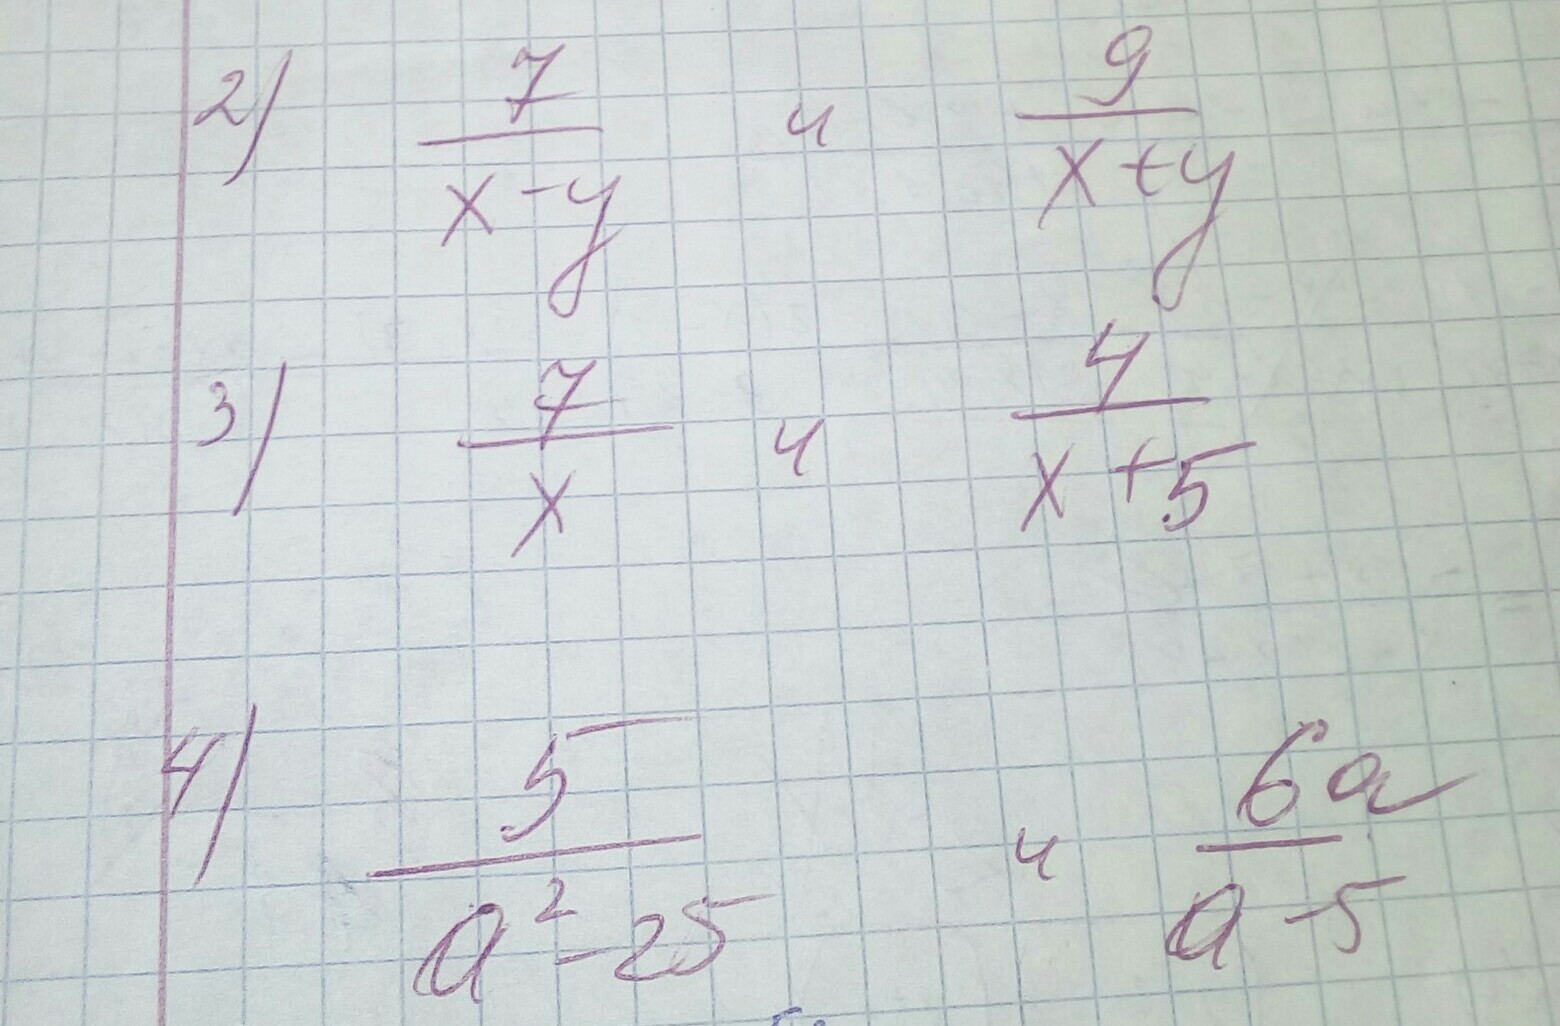 2) 7/(x-y) и 9/(x+y)
3) 7/x и 4/(x+5)
4) 5/(a²-25) и 6a/(a-5)